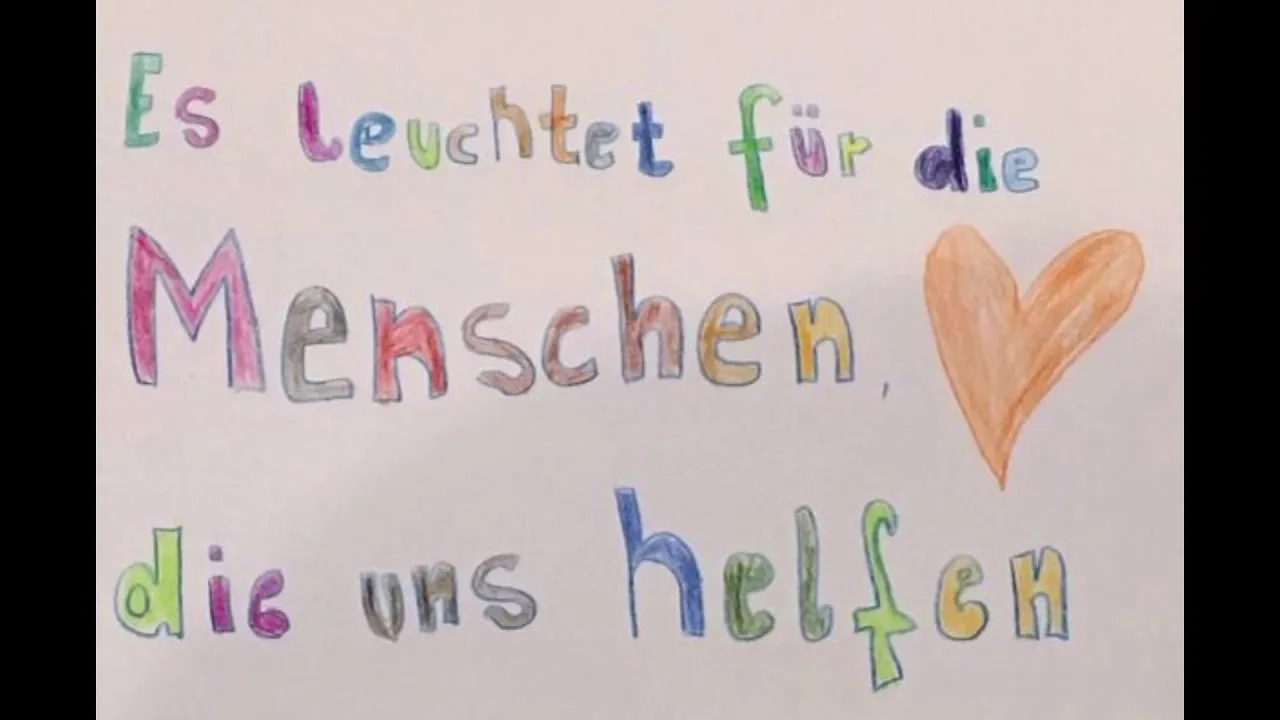 Es leuchtet für die
Menschen,
die uns helfen